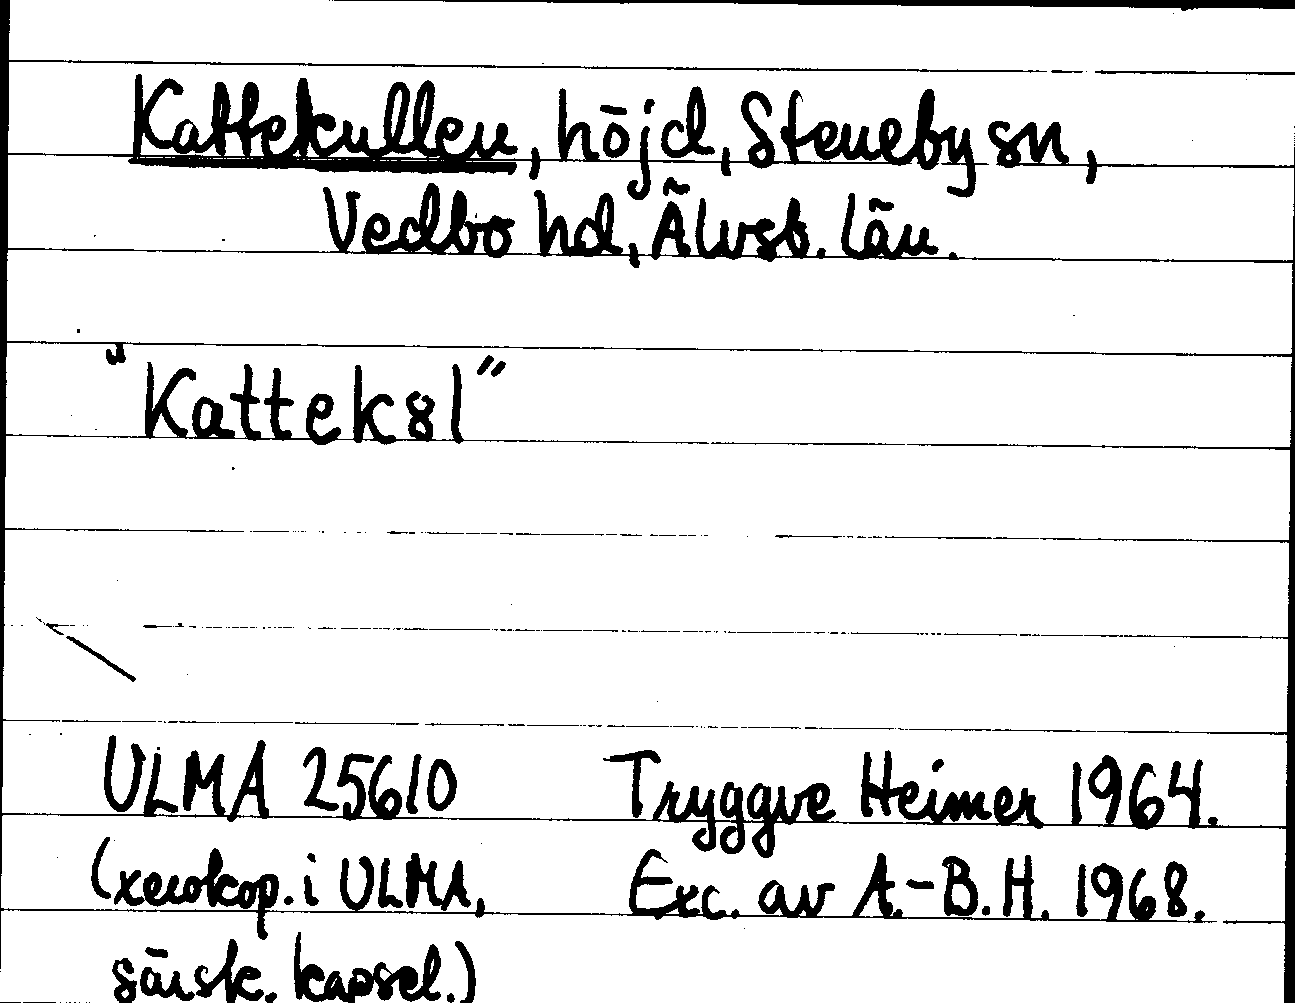 Kattekullen, höjd, Steneby sn,
Vedbo hd, Älvsb. län.
"Kattek8l"
ULMA 25610 Tryggve Heimer 1964.
(xerokop. i ULMA, Exc. av A.-B.H. 1968.
särsk. kapsel.)